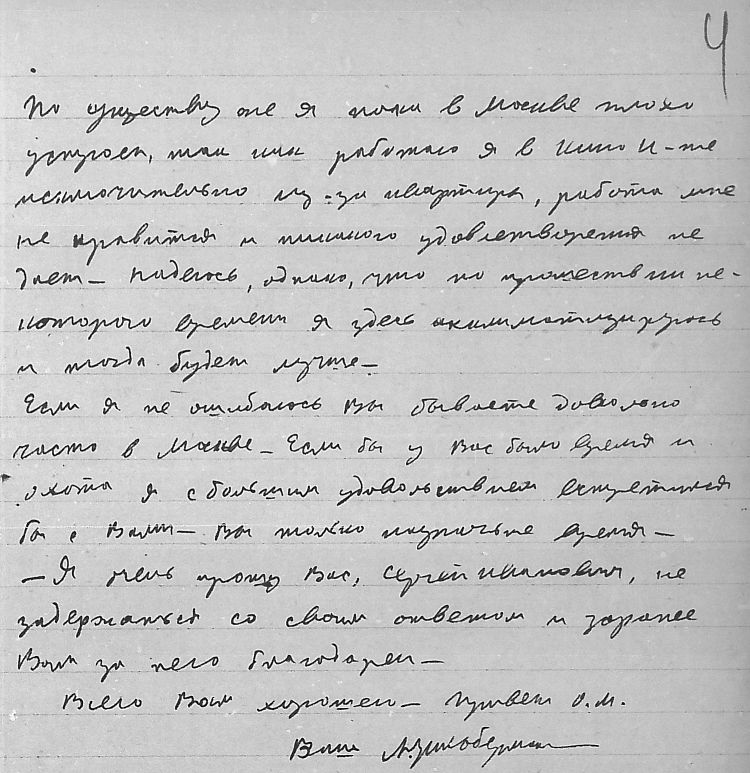 4
По существу же я пока в Москве плохо
устроен, так как работаю я в Кино И-те
исключительно из-за квартиры, работа мне
не нравится и никакого удовлетворения не
дает — Надеюсь, однако, что по прошествии не-
которого времени я здесь акклиматизируюсь
и тогда будет лучше —
Если я не ошибаюсь Вы бываете довольно
часто в Москве — Если бы у Вас было время и
охота я с большим удовольствием встретился
бы с Вами — Вы только назначьте время —
— Я очень прошу Вас, Сергей Иванович, не
задержаться со своим ответом и заранее
Вам за него благодарен —
Всего Вам хорошего — Привет О.М.
Ваш